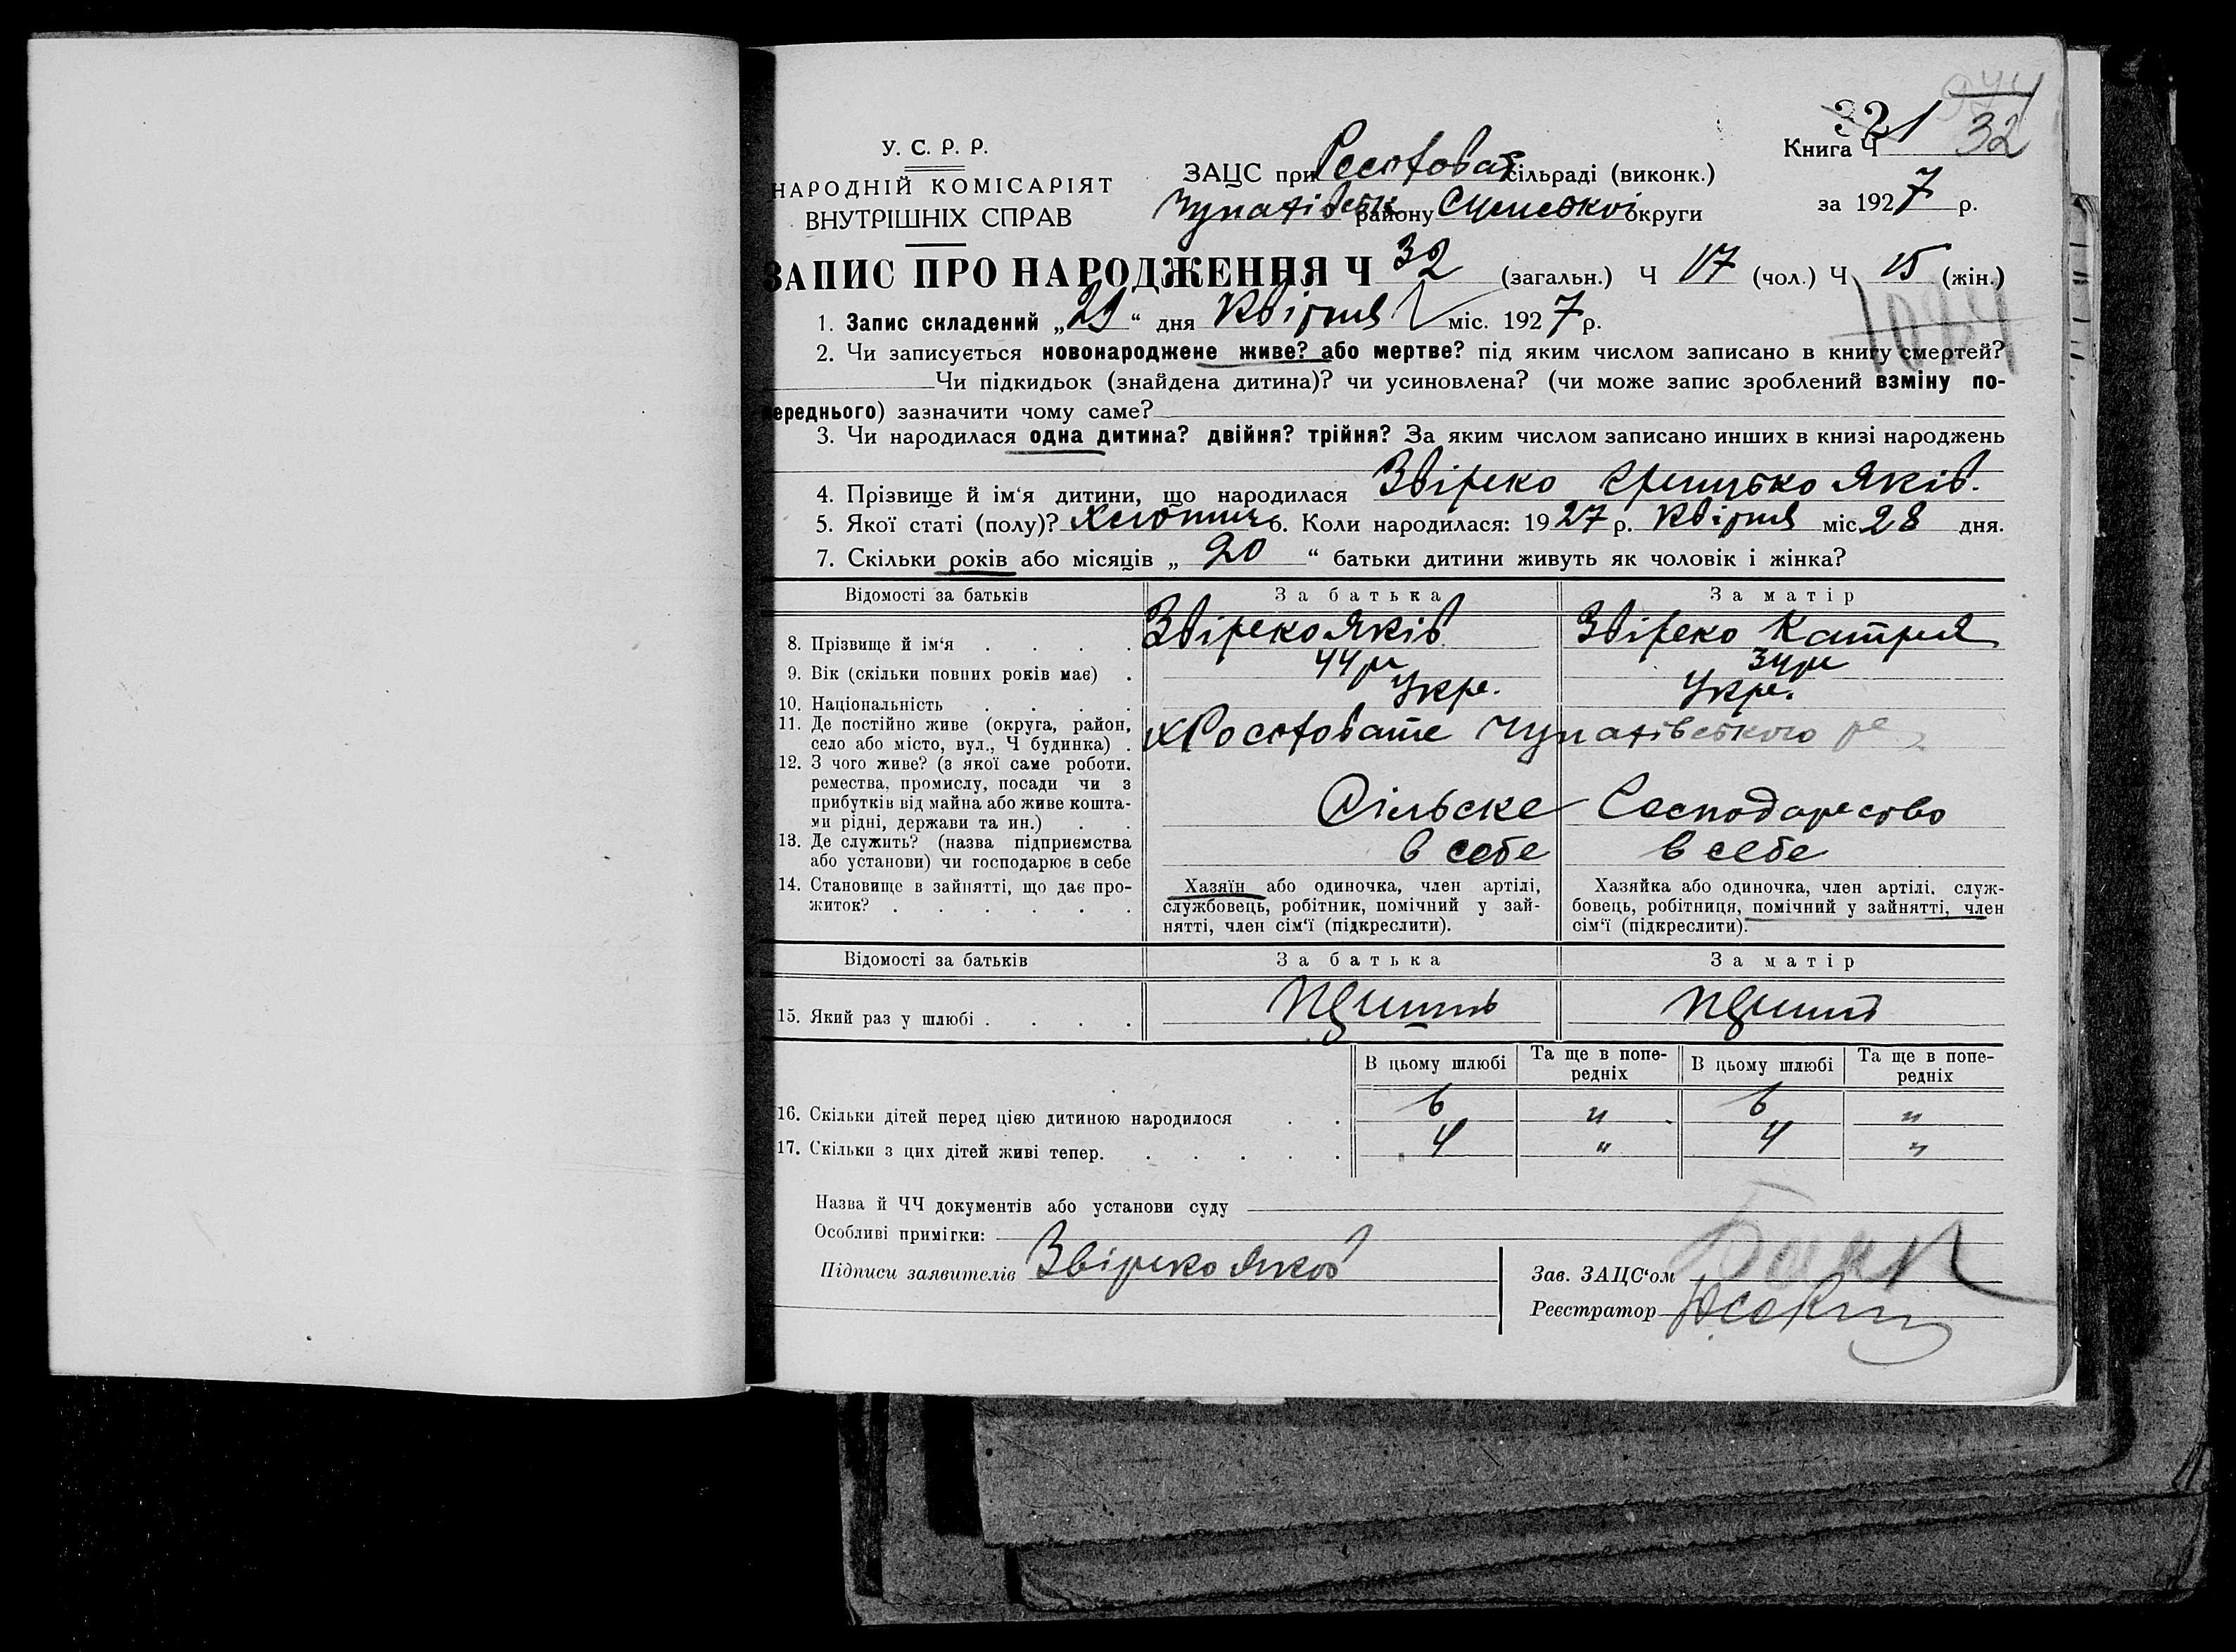 321
32
У. С. Р. Р.
Книга Ч
НАРОДНІЙ КОМІСАРІЯТ
ЗАЦС при сільраді (виконк.)
ВНУТРІШНІХ СПРАВ
району Сумської округи
за 1927 р.
ЗАПИС ПРО НАРОДЖЕННЯ Ч 32 (загальн.) Ч 17 (чол.) Ч 15 (жін.)
1. Запис складений „29“ дня Квітня міс. 1927 р.
2. Чи записується новонароджене живе? або мертве? під яким числом записано в книгу смертей?
Чи підкидьок (знайдена дитина)? чи усиновлена? (чи може запис зроблений взміну по-
переднього) зазначити чому саме?
3. Чи народилася одна дитина? двійня? трійня? За яким числом записано инших в книзі народжень
4. Прізвище й ім‘я дитини, що народилася Звірко Грицько Яків.
5. Якої статі (полу)? Хлопчик. Коли народилася: 1927 р. Квітня міс. 28 дня.
7. Скільки років або місяців „ 20 “ батьки дитини живуть як чоловік і жінка?
Відомості за батьків За батька За матір
8. Прізвище й ім‘я . . . . Звірко Яків Звірко Катря
9. Вік (скільки повних років має) . 44 р 34 р
10. Національність . . . . Укр. Укр.
11. Де постійно живе (округа, район,
село або місто, вул., Ч будинка) .
12. З чого живе? (з якої саме роботи,
ремества, промислу, посади чи з
прибутків від майна або живе кошта-
ми рідні, держави та ин.) . . Сільске Господарство
13. Де служить? (назва підприємства
або установи) чи господарює в себе в себе в себе
14. Становище в зайнятті, що дає про-
житок? . . . . . .
Хазяїн або одиночка, член артілі,
службовець, робітник, помічний у зай-
нятті, член сім‘ї (підкреслити).
Хазяйка або одиночка, член артілі, служ-
бовець, робітниця, помічний у зайнятті, член
сім‘ї (підкреслити).
Відомості за батьків За батька За матір
15. Який раз у шлюбі . . . .
В цьому шлюбі Та ще в попе-
редніх В цьому шлюбі Та ще в попе-
редніх
16. Скільки дітей перед цією дитиною народилося . . 6 " 6 "
17. Скільки з цих дітей живі тепер. . . . . . 4 " 4 "
Назва й ЧЧ документів або установи суду
Особливі примітки:
Підписи заявителів Звірко Яков
Зав. ЗАЦС‘ом
Реєстратор